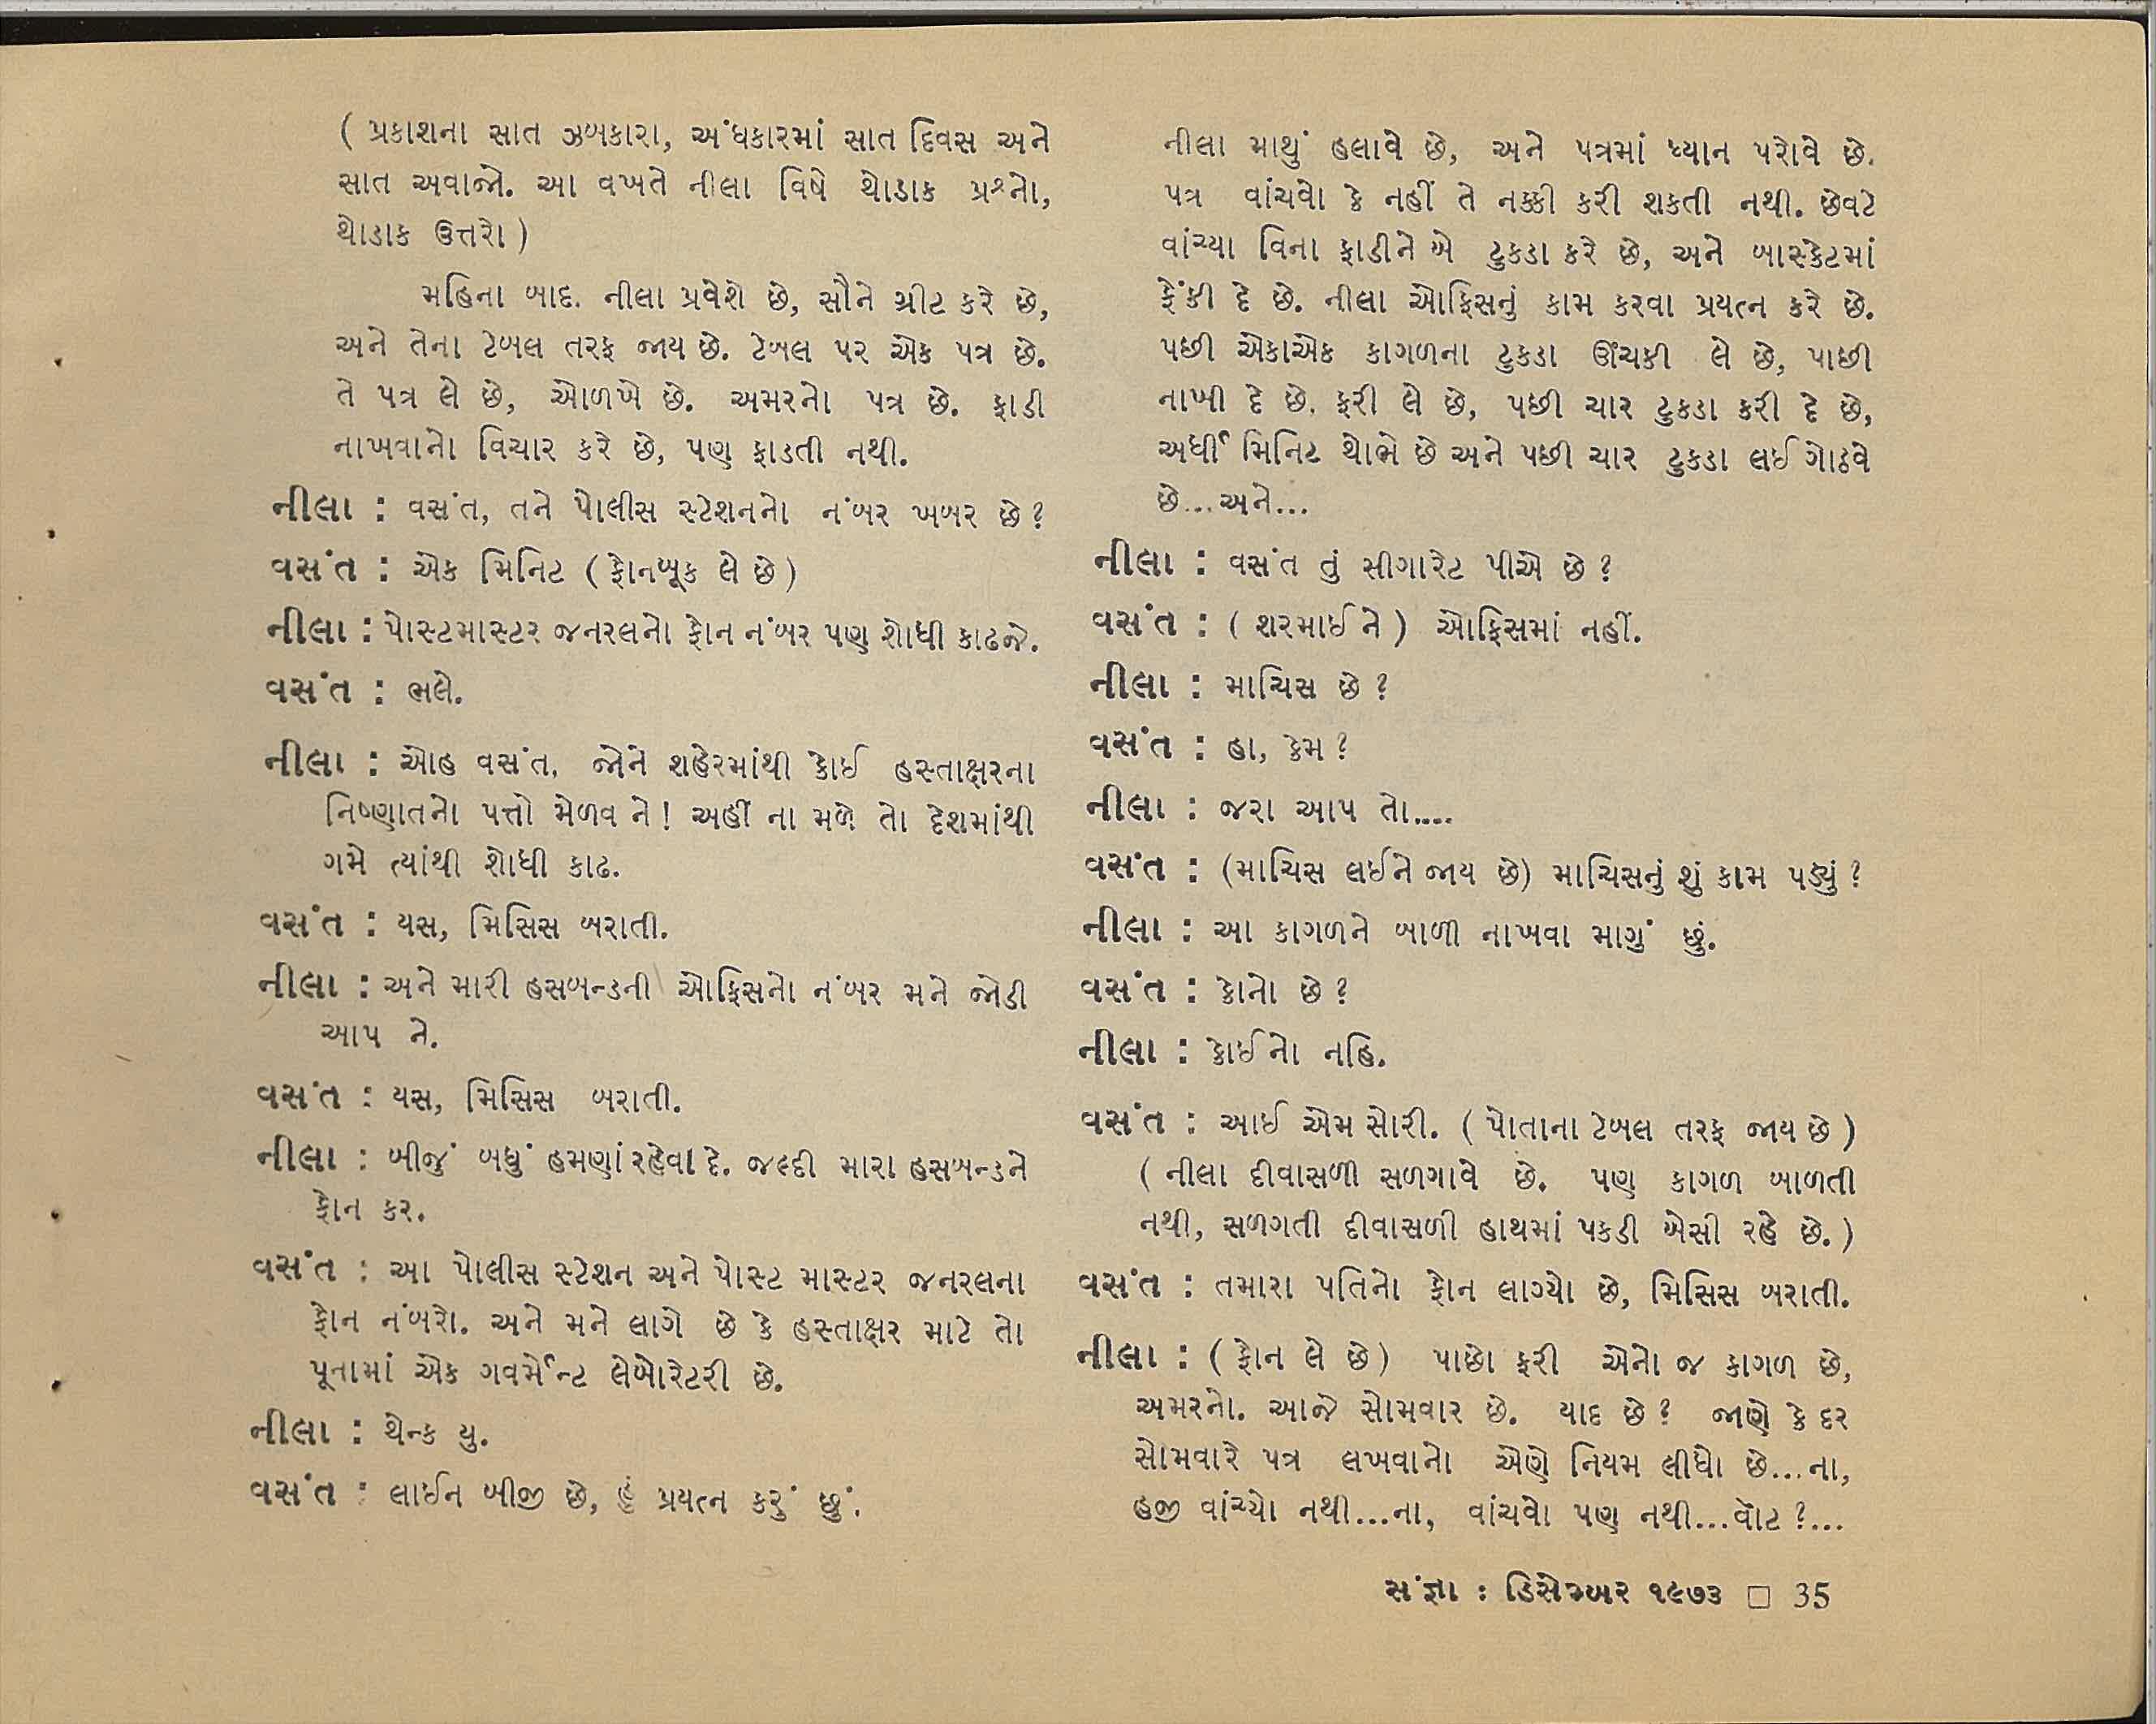 ( પ્રકાશના સાત ઝબકારા, અંધકારમાં સાત દિવસ અને
સાત અવાજો. આ વખતે નીલા વિષે થોડાક પ્રશ્નો,
થોડાક ઉત્તરો )
મહિના બાદ. નીલા પ્રવેશે છે, સૌને ગ્રીટ કરે છે,
અને તેના ટેબલ તરફ જાય છે. ટેબલ પર એક પત્ર છે.
તે પત્ર લે છે, ઓળખે છે. અમરનો પત્ર છે. ફાડી
નાખવાનો વિચાર કરે છે, પણ ફાડતી નથી.
નીલા : વસંત, તને પોલીસ સ્ટેશનનો નંબર ખબર છે?
વસંત : એક મિનિટ ( ફોનબૂક લે છે )
નીલા : પોસ્ટમાસ્ટર જનરલનો ફોન નંબર પણ શોધી કાઢજે.
વસંત : ભલે.
નીલા : ઓહ વસંત, જોને શહેરમાંથી કોઈ હસ્તાક્ષરના
નિષ્ણાતનો પત્તો મેળવ ને! અહીં ના મળે તો દેશમાંથી
ગમે ત્યાંથી શોધી કાઢ.
વસંત : યસ, મિસિસ બરાતી.
નીલા : અને મારી હસબન્ડની ઓફિસનો નંબર મને જોડી
આપ ને.
વસંત : યસ, મિસિસ બરાતી.
નીલા : બીજું બધું હમણાં રહેવા દે. જલ્દી મારા હસબન્ડને
ફોન કર.
વસંત : આ પોલીસ સ્ટેશન અને પોસ્ટ માસ્ટર જનરલના
ફોન નંબરો. અને મને લાગે છે કે હસ્તાક્ષર માટે તો
પૂનામાં એક ગવર્મેન્ટ લેબોરેટરી છે.
નીલા : થેન્ક યુ.
વસંત : લાઈન બીજી છે, હું પ્રયત્ન કરું છું.
નીલા માથું હલાવે છે, અને પત્રમાં ધ્યાન પરોવે છે.
પત્ર વાંચવો કે નહીં તે નક્કી કરી શકતી નથી. છેવટે
વાંચ્યા વિના ફાડીને બે ટુકડા કરે છે, અને બાસ્કેટમાં
ફેંકી દે છે. નીલા ઓફિસનું કામ કરવા પ્રયત્ન કરે છે.
પછી એકાએક કાગળના ટુકડા ઊંચકી લે છે, પાછી
નાખી દે છે. ફરી લે છે, પછી ચાર ટુકડા કરી દે છે,
અર્ધી મિનિટ થોભે છે અને પછી ચાર ટુકડા લઈ ગોઠવે
છે...અને...
નીલા : વસંત તું સીગારેટ પીએ છે?
વસંત : ( શરમાઈને ) ઓફિસમાં નહીં.
નીલા : માચિસ છે?
વસંત : હા, કેમ?
નીલા : જરા આપ તો....
વસંત : (માચિસ લઈને જાય છે) માચિસનું શું કામ પડ્યું?
નીલા : આ કાગળને બાળી નાખવા માગું છું.
વસંત : કોનો છે?
નીલા : કોઈનો નહિ.
વસંત : આઈ એમ સોરી. ( પોતાના ટેબલ તરફ જાય છે )
( નીલા દીવાસળી સળગાવે છે. પણ કાગળ બાળતી
નથી, સળગતી દીવાસળી હાથમાં પકડી બેસી રહે છે.)
વસંત : તમારા પતિનો ફોન લાગ્યો છે, મિસિસ બરાતી.
નીલા : ( ફોન લે છે ) પાછો ફરી એનો જ કાગળ છે,
અમરનો. આજે સોમવાર છે. યાદ છે? જાણે કે દર
સોમવારે પત્ર લખવાનો એણે નિયમ લીધો છે...ના,
હજી વાંચ્યો નથી...ના, વાંચવો પણ નથી...વૉટ?...
સંજ્ઞા : ડિસેમ્બર ૧૯૭૩ □ 35